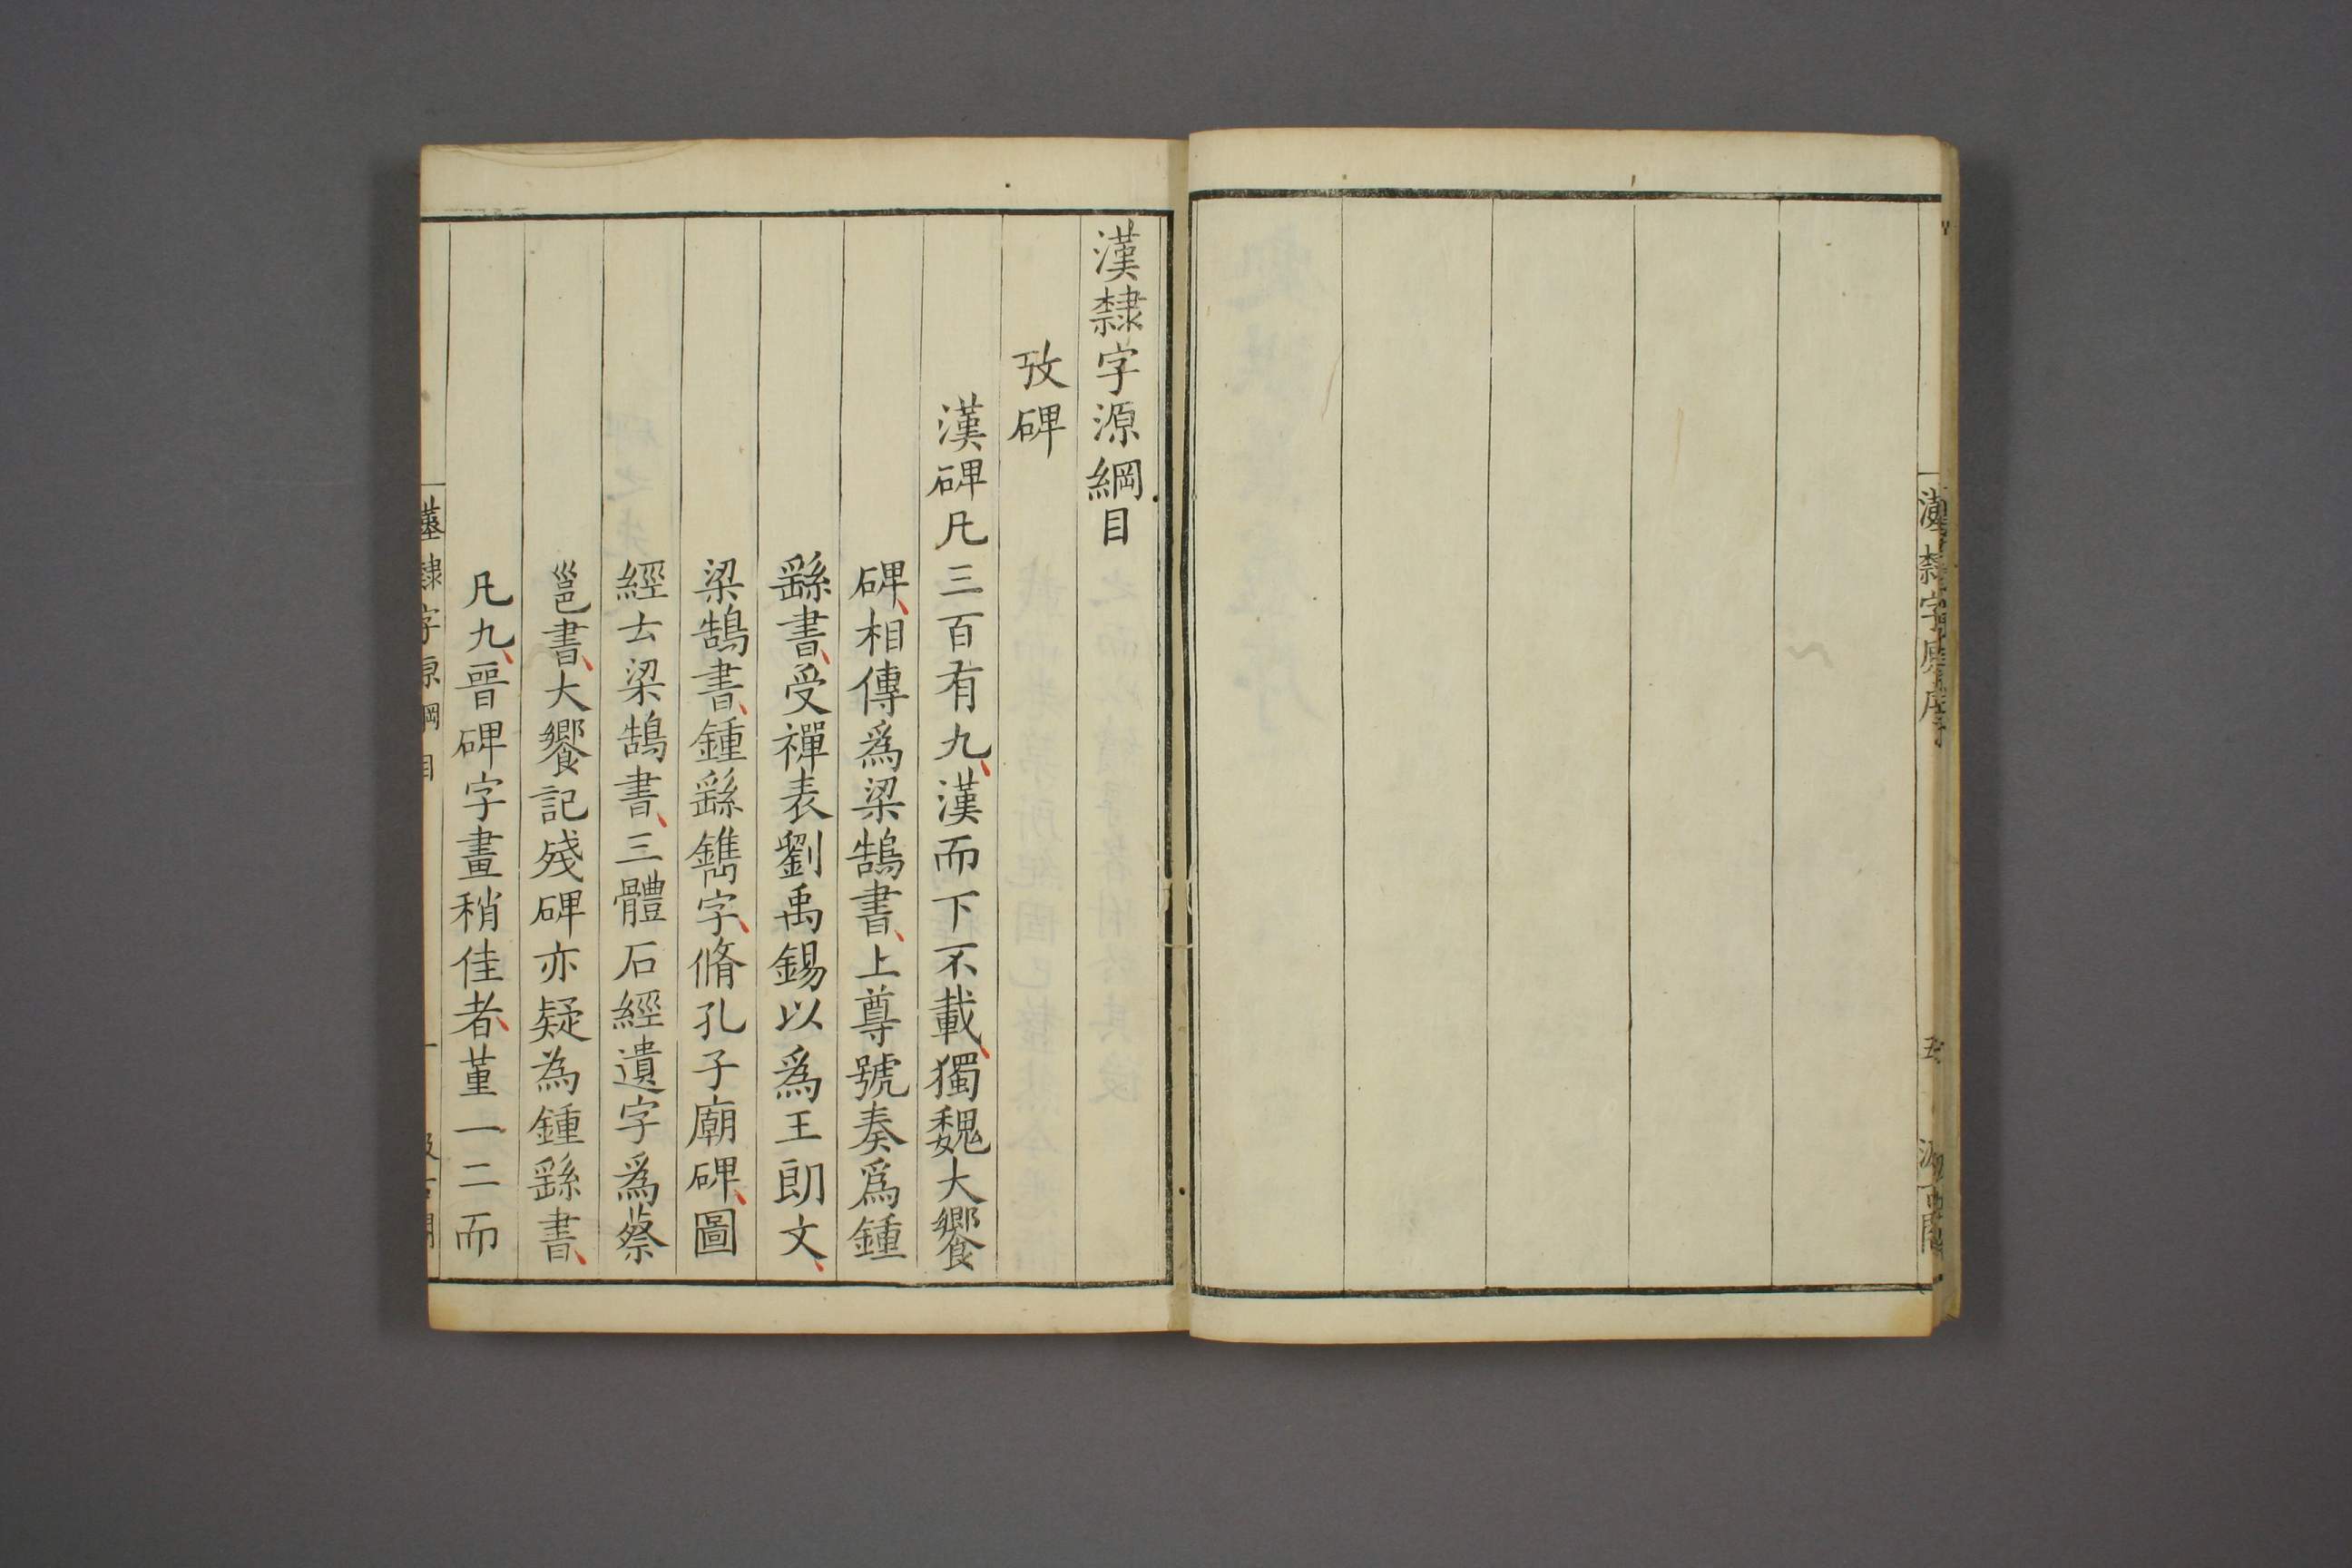 漢隸字源綱目
攷碑
漢碑凡三百有九、漢而下不載、獨魏大饗
碑、相傳爲梁鵠書、上尊號奏爲鍾
繇書、受禪表劉禹錫以爲王朗文、
梁鵠書、鍾繇鐫字、脩孔子廟碑、圖
經云梁鵠書、三體石經遺字爲蔡
邕書、大饗記殘碑亦疑為鍾繇書、
凡九、晉碑字畫稍佳者、菫一二而